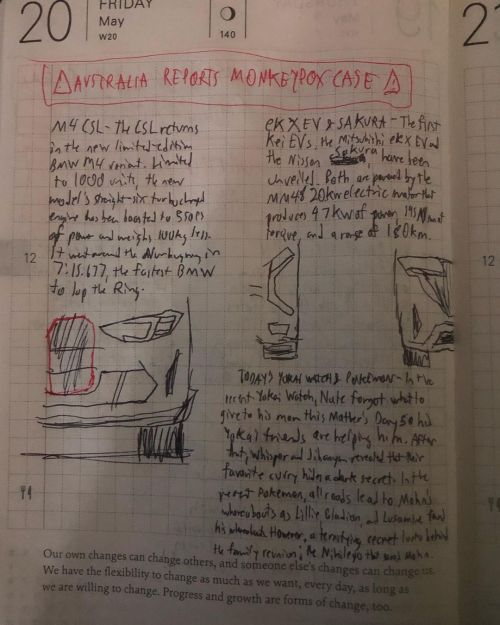 20
FRIDAY
May
W20
140
2
AUSTRALIA REPORTS MONKEYPOX CASE
M4 CSL - The CSL returns
in the new limited-edition
BMW M4 variant. Limited
to 1000 units, the new
model's straight-six turbocharged
engine has been boosted to 550PS
of power and weighs 100kg less.
It went around the Nurburgring in
7:15.677, the fastest BMW
to lap the Ring.
eK X EV & SAKURA - The first
Kei EVs, the Mitsubishi eK X EV and
the Nissan Sakura, have been
unveiled. Both are powered by the
MM48 20kw electric motor that
produces 47kW of power, 195Nm of
torque, and a range of 180km.
12
12
TODAY'S YOKAI WATCH & POKEMON - In the
recent Yokai Watch, Nate forgot what to
give to his mom this Mother's Day so his
Yokai friends are helping him. After
that, Whisper and Jibanyan revealed that their
favorite curry hides a dark secret. In the
recent Pokemon, all roads lead to Mohn's
whereabouts as Lillie, Gladion, and Lusamine found
his whereabouts. However, a terrifying secret lurks behind
the family reunion; the Nihilego that Mohn.
Our own changes can change others, and someone else's changes can change us.
We have the flexibility to change as much as we want, every day, as long as
we are willing to change. Progress and growth are forms of change, too.